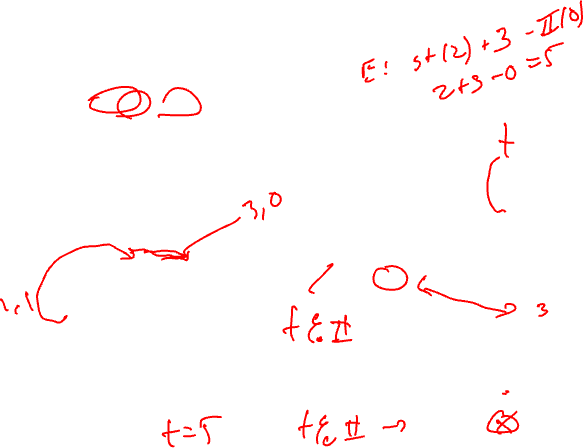 E: st(2) + 3 - II(0)
2+3-0=5
t
3,0
1,1
3
t & II
t=5 t & II →